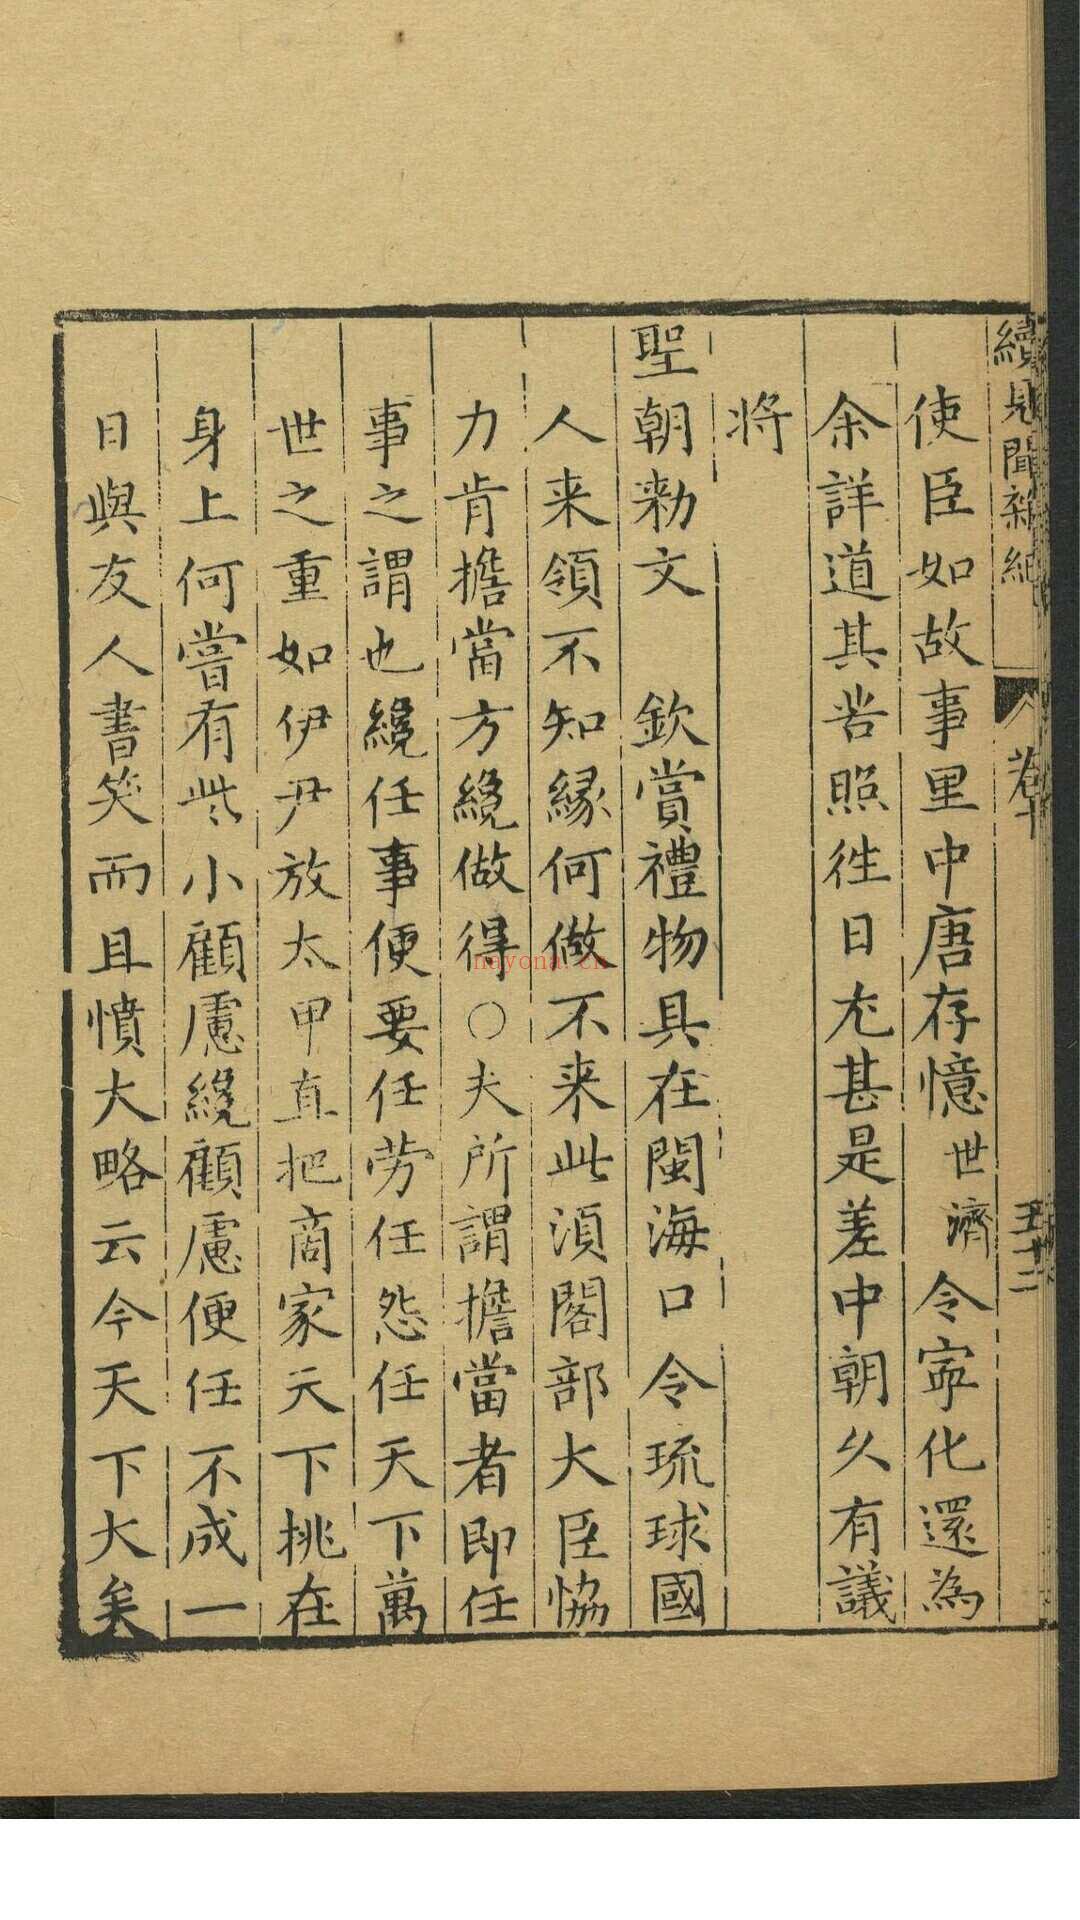 續見聞雜紀
卷十
五十二
使臣如故事里中唐存憶世濟令寧化還為
余詳道其苦照徃日尤甚是差中朝久有議
将
聖朝勑文　欽賞禮物具在閩海口令琉球國
人来領不知縁何做不来此湏閣部大臣恊
力肯擔當方纔做得○夫所謂擔當者即任
事之謂也纔任事便要任劳任怨任天下萬
世之重如伊尹放太甲直把商家天下挑在
身上何嘗有此小顧慮纔顧慮便任不成一
日與友人書笑而且憤大略云今天下大矣
nayona.cn